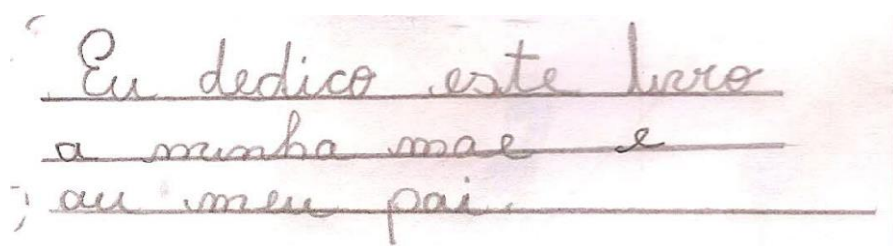 Eu dedico este livro
a minha mae e
au meu pai.